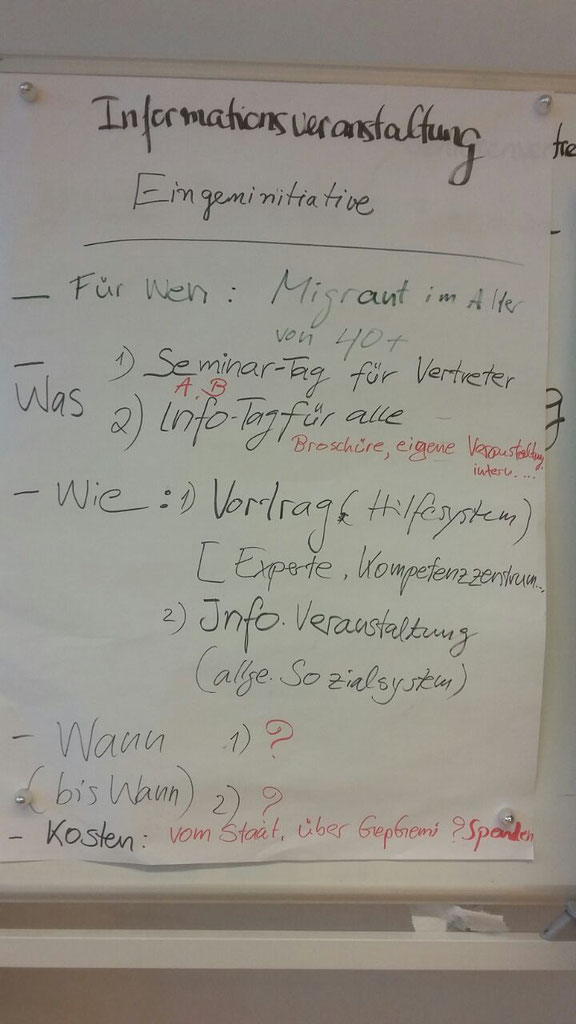 Informationsveranstaltung
Eingeminitiative
tre
- Für Wen : Migrant im Alter
von 40+
- Was 1) Seminar-Tag für Vertreter
A, B
2) Info-Tag für alle
Broschüre, eigene Veranstaltung
intern....
- Wie : 1) Vortrag (Hilfesystem)
[Experte, Kompetenzzentrum...
2) Info. Veranstaltung
(allge. Sozialsystem)
- Wann 1) ?
(bis Wann) 2) ?
- Kosten: vom Staat, über ? Spenden